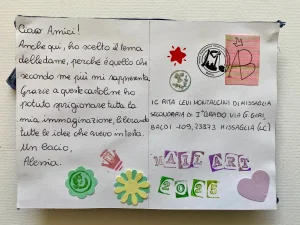 Ciao Amici!
Anche qui, ho scelto il tema
delle dame, perché è quello che
secondo me più mi rappresenta.
Grazie a queste cartoline ho
potuto sprigionare tutta la
mia immaginazione, liberando
tutte le idee che avevo in testa.
Un bacio,
Alessia.
AB
IC RITA LEVI MONTALCINI DI MISSAGLIA
SECONDARIA DI I° GRADO VIA G. GARI
BALDI -109, 23873 MISSAGLIA (LC)
MAIL ART
2023